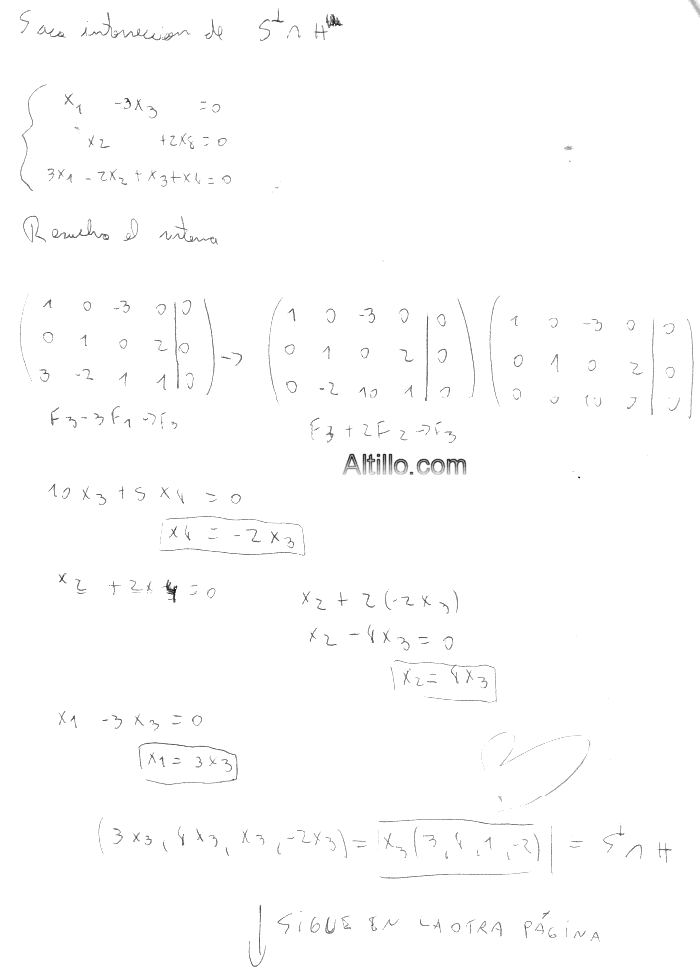 Saco interseccion de S⊥ ∩ H
x1 -3x3 =0
x2 +2x4=0
3x1 - 2x2 + x3+x4=0
Resuelvo el sistema
1 0 -3 0 | 0
0 1 0 2 | 0
3 -2 1 1 | 0
F3-3F1→F3
→
1 0 -3 0 | 0
0 1 0 2 | 0
0 -2 10 1 | 0
F3+2F2→F3
1 0 -3 0 | 0
0 1 0 2 | 0
0 0 10 5 | 0
Altillo.com
10x3+5x4 = 0
x4 = -2x3
x2 + 2x4 = 0
x2 + 2(-2x3)
x2 - 4x3 = 0
x2 = 4x3
x1 -3x3 = 0
x1 = 3x3
(3x3, 4x3, x3, -2x3) = x3(3,4,1,-2) = S⊥ ∩ H
↓ SIGUE EN LA OTRA PÁGINA